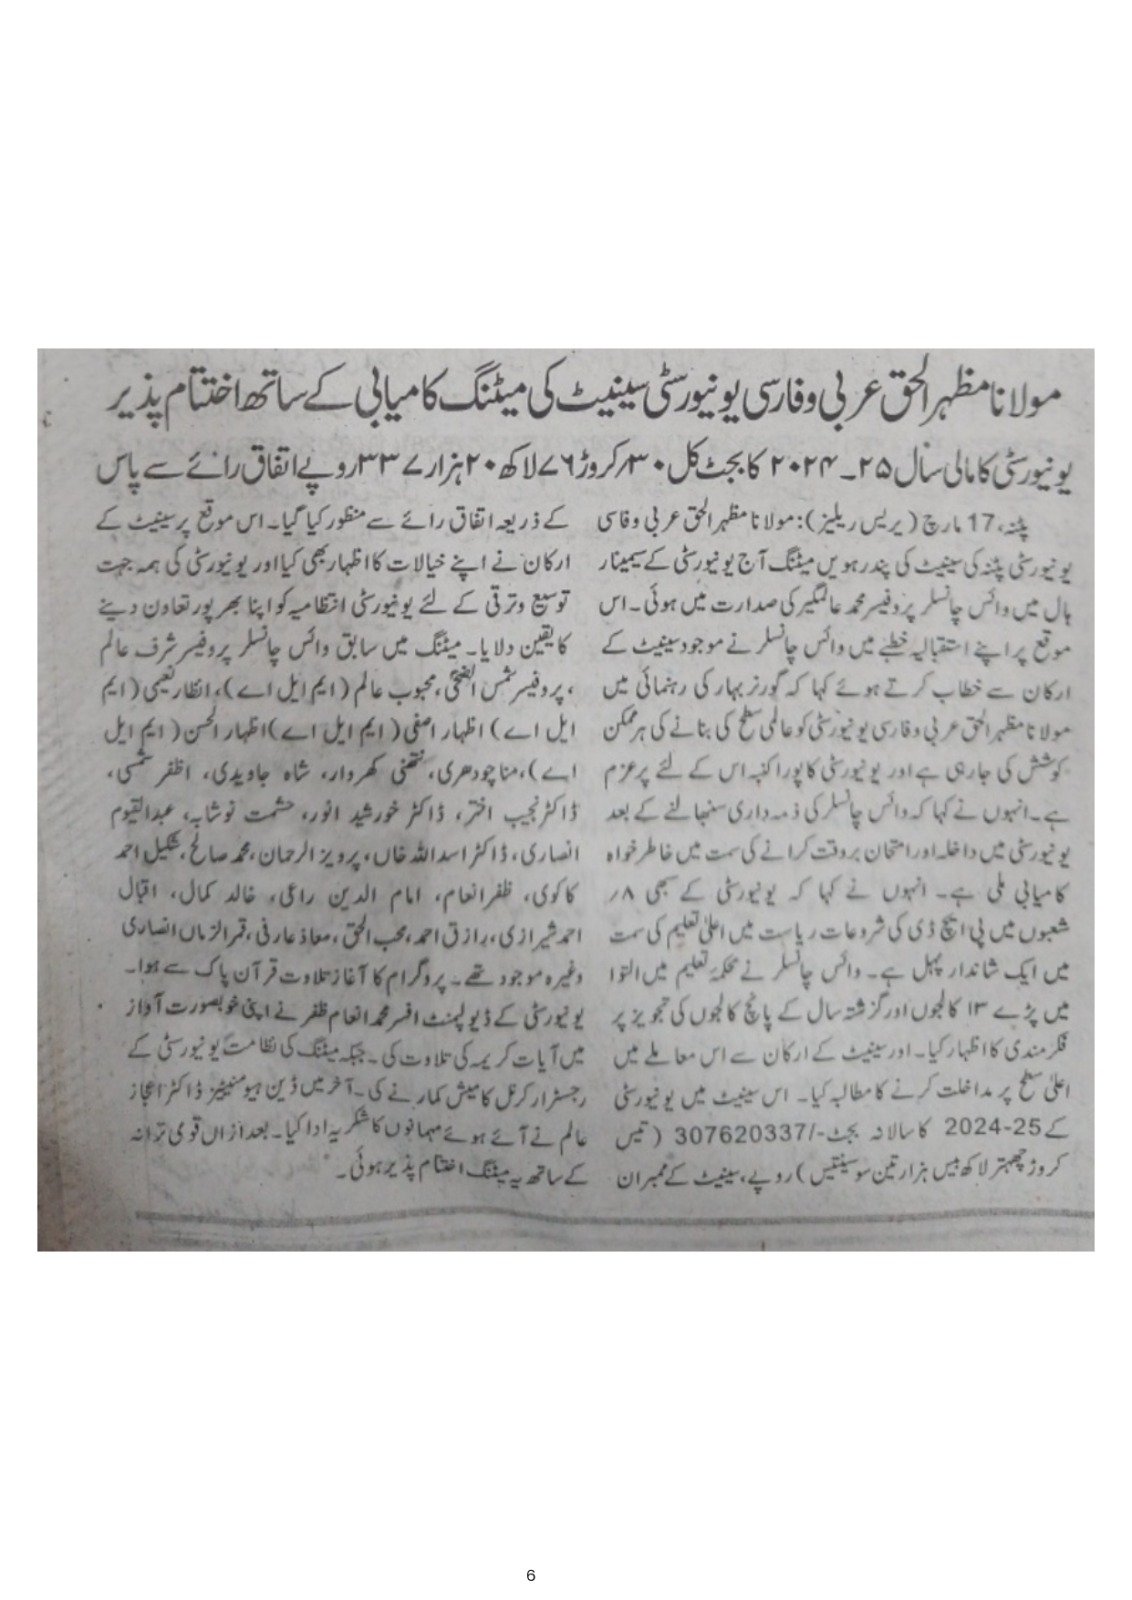 مولانا مظہر الحق عربی و فارسی یونیورسٹی سینیٹ کی میٹنگ کامیابی کے ساتھ اختتام پذیر
یونیورسٹی کا مالی سال ۲۵۔۲۰۲۴ کا بجٹ کل ۳۰؍کروڑ ۷۶ لاکھ ۲۰ ہزار ۳۳۷ روپے اتفاق رائے سے پاس
پٹنہ، 17 مارچ (پریس ریلیز): مولانا مظہر الحق عربی و فاسی
یونیورسٹی پٹنہ کی سینیٹ کی پندرہویں میٹنگ آج یونیورسٹی کے سیمینار
ہال میں وائس چانسلر پروفیسر محمد عالمگیر کی صدارت میں ہوئی۔ اس
موقع پر اپنے استقبالیہ خطبے میں وائس چانسلر نے موجود سینیٹ کے
ارکان سے خطاب کرتے ہوئے کہا کہ گورنر بہار کی رہنمائی میں
مولانا مظہر الحق عربی و فارسی یونیورسٹی کو عالمی سطح کی بنانے کی ہر ممکن
کوشش کی جارہی ہے اور یونیورسٹی کا پورا کنبہ اس کے لئے پرعزم
ہے۔ انہوں نے کہا کہ وائس چانسلر کی ذمہ داری سنبھالنے کے بعد
یونیورسٹی میں داخلہ اور امتحان بروقت کرانے کی سمت میں خاطر خواہ
کامیابی ملی ہے۔ انہوں نے کہا کہ یونیورسٹی کے سبھی ۸؍
شعبوں میں پی ایچ ڈی کی شروعات ریاست میں اعلیٰ تعلیم کی سمت
میں ایک شاندار پہل ہے۔ وائس چانسلر نے محکمۂ تعلیم میں التوا
میں پڑے ۱۳ کالجوں اور گزشتہ سال کے پانچ کالجوں کی تجویز پر
فکرمندی کا اظہار کیا۔ اور سینیٹ کے ارکان سے اس معاملے میں
اعلیٰ سطح پر مداخلت کرنے کا مطالبہ کیا۔ اس سینیٹ میں یونیورسٹی
کے 2024-25 کا سالانہ بجٹ -/307620337 (تیس
کروڑ چھہتر لاکھ بیس ہزار تین سو سینتیس) روپے، سینیٹ کے ممبران
کے ذریعہ اتفاق رائے سے منظور کیا گیا۔ اس موقع پر سینیٹ کے
ارکان نے اپنے خیالات کا اظہار بھی کیا اور یونیورسٹی کی ہمہ جہت
توسیع و ترقی کے لئے یونیورسٹی انتظامیہ کو اپنا بھر پور تعاون دینے
کا یقین دلایا۔ میٹنگ میں سابق وائس چانسلر پروفیسر شرف عالم
، پروفیسر شمس الضحیٰ، محبوب عالم (ایم ایل اے)، انظار نعیمی (ایم
ایل اے) اظہار اصفی (ایم ایل اے) اظہار الحسن (ایم ایل
اے)، منا چودھری، ننھی کھروار، شاہ جاویدی، اظفر شمسی،
ڈاکٹر نجیب اختر، ڈاکٹر خورشید انور، حشمت نوشابہ، عبدالقیوم
انصاری، ڈاکٹر اسد اللہ خاں، پرویز الرحمان، محمد صالح، شکیل احمد
کاکوی، ظفر انعام، امام الدین راعی، خالد کمال، اقبال
احمد شیرازی، رازق احمد، محب الحق، معاذ عارفی، قمر الزماں انصاری
وغیرہ موجود تھے۔ پروگرام کا آغاز تلاوت قرآن پاک سے ہوا۔
یونیورسٹی کے ڈیولپمنٹ افسر محمد انعام ظفر نے اپنی خوبصورت آواز
میں آیات کریمہ کی تلاوت کی۔ جبکہ میٹنگ کی نظامت یونیورسٹی کے
رجسٹرار کرنل کامیش کمار نے کی۔ آخر میں ڈین ہیومنیٹیز ڈاکٹر اعجاز
عالم نے آئے ہوئے مہمانوں کا شکریہ ادا کیا۔ بعد ازاں قومی ترانہ
کے ساتھ یہ میٹنگ اختتام پذیر ہوئی۔
6